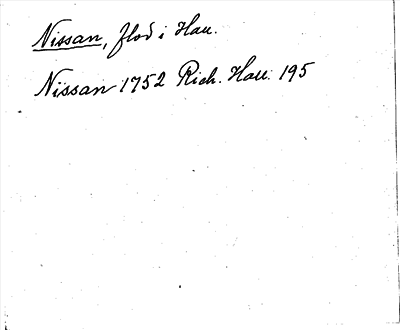 Nissan, flod i Hall.
Nissan 1752 Rich. Hall. 195